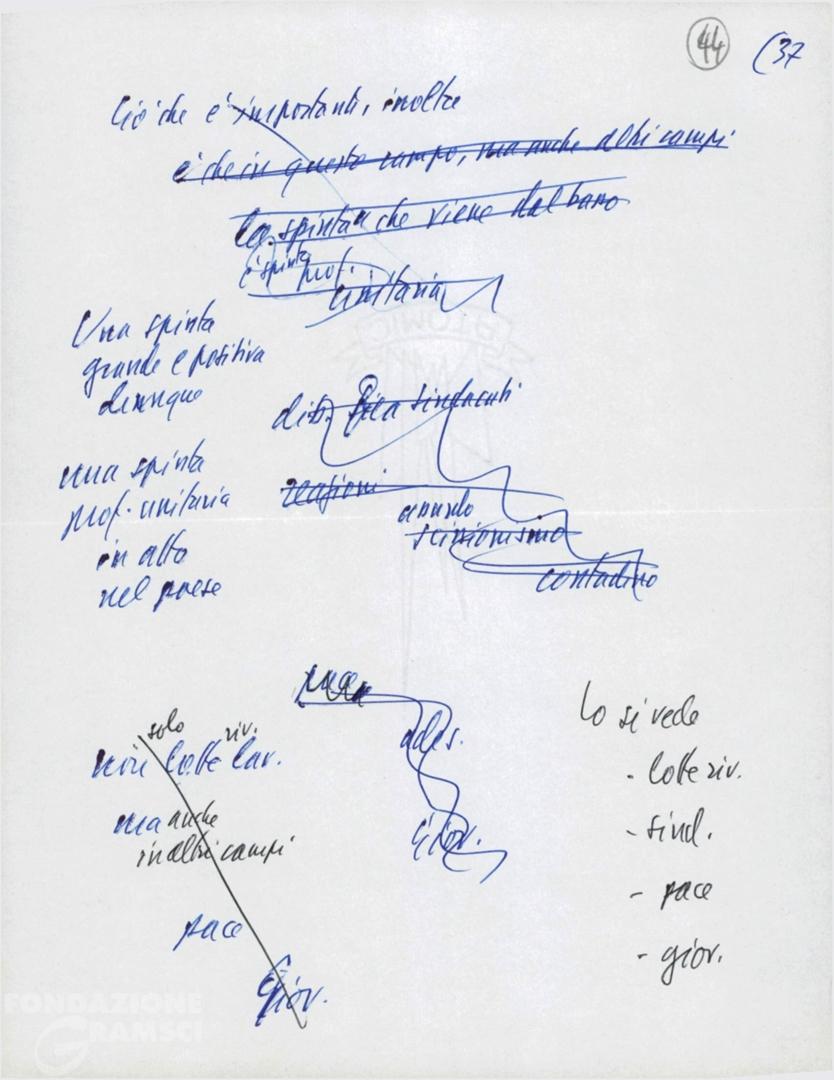 44 (37
Ciò che è importante, inoltre
è che in questo campo, ma anche altri campi
la spinta che viene dal basso
è spinta prof.
unitaria
Una spinta
grande e positiva
dunque
dib. sindacati
una spinta
prof. unitaria
in atto
nel paese
reazioni
annullo
scissionismo
contadino
pace
ades.
Giov.
solo riv.
non lotte lav.
ma anche
in altri campi
pace
Giov.
Lo si vede
- lotte riv.
- sind.
- pace
- giov.
FONDAZIONE
GRAMSCI